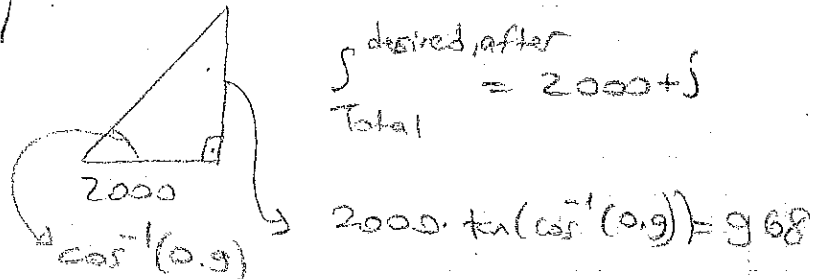 S desired, after
Total = 2000 + j
2000
cos⁻¹(0.9)
2000. tan(cos⁻¹(0.9)) = 968